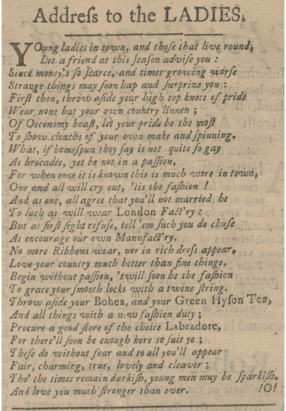 Addreſs to the LADIES.
YOung ladies in town, and thoſe that live round,
Let a friend at this ſeaſon adviſe you:
Since money's ſo ſcarce, and times growing worſe
Strange things may ſoon hap and ſurprize you:
Firſt then, throw aſide your high top knots of pride
Wear none but your own country linnen;
Of Oeconomy boaſt, let your pride be the moſt
To ſhow cloaths of your own make and ſpinning.
What, if homeſpun they ſay is not quite ſo gay
As brocades, yet be not in a paſſion,
For when once it is known this is much wore in town,
One and all will cry out, 'tis the faſhion!
And as one, all agree that you'll not married be
To ſuch as will wear London Fact'ry:
But at firſt ſight refuſe, tell 'em ſuch you do chuſe
As encourage our own Manufact'ry.
No more Ribbons wear, nor in rich dreſs appear,
Love your country much better than fine things,
Begin without paſſion, 'twill ſoon be the faſhion
To grace your ſmooth locks with a twine ſtring.
Throw aſide your Bohea, and your Green Hyſon Tea,
And all things with a new faſhion duty;
Procure a good ſtore of the choice Labradore,
For there'll ſoon be enough here to ſuit ye;
Theſe do without fear and to all you'll appear
Fair, charming, true, lovely and cleaver;
Tho' the times remain darkiſh, young men may be ſparkiſh.
And love you much ſtronger than ever. !O!